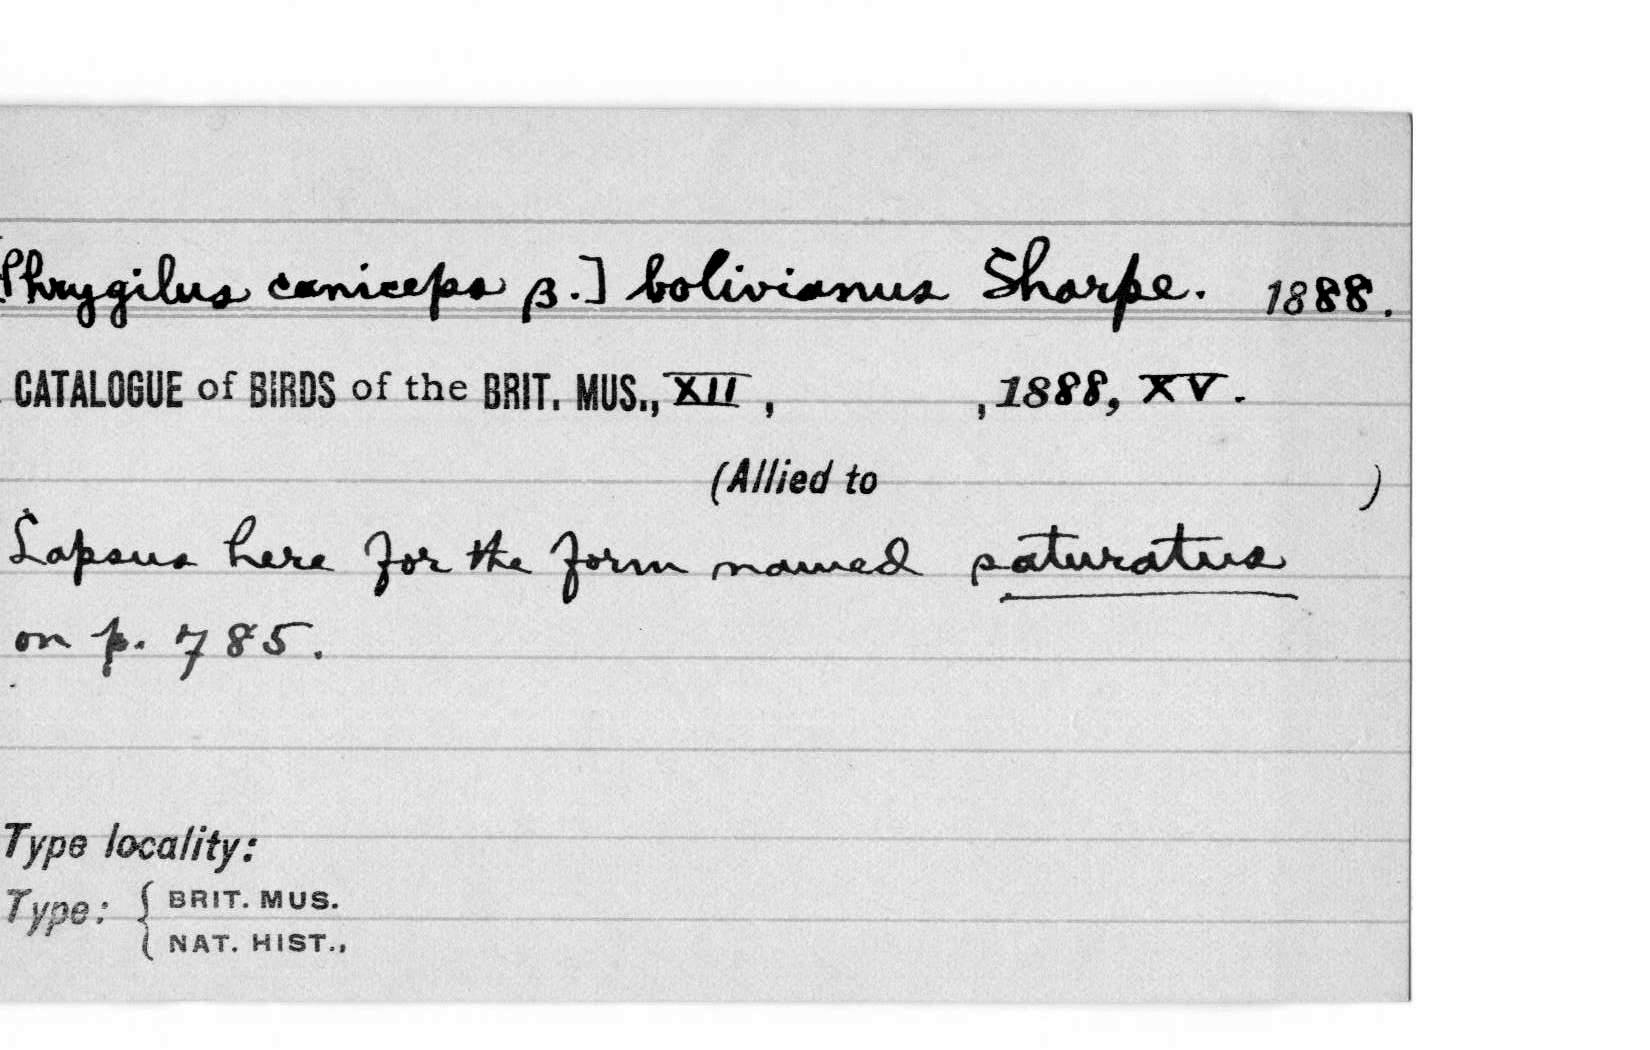 [Phrygilus caniceps β.] bolivianus Sharpe. 1888.
CATALOGUE of BIRDS of the BRIT. MUS., XII, , 1888, XV.
(Allied to )
Lapsus here for the form named saturatus
on p. 785.
Type locality:
Type: { BRIT. MUS.
NAT. HIST.,